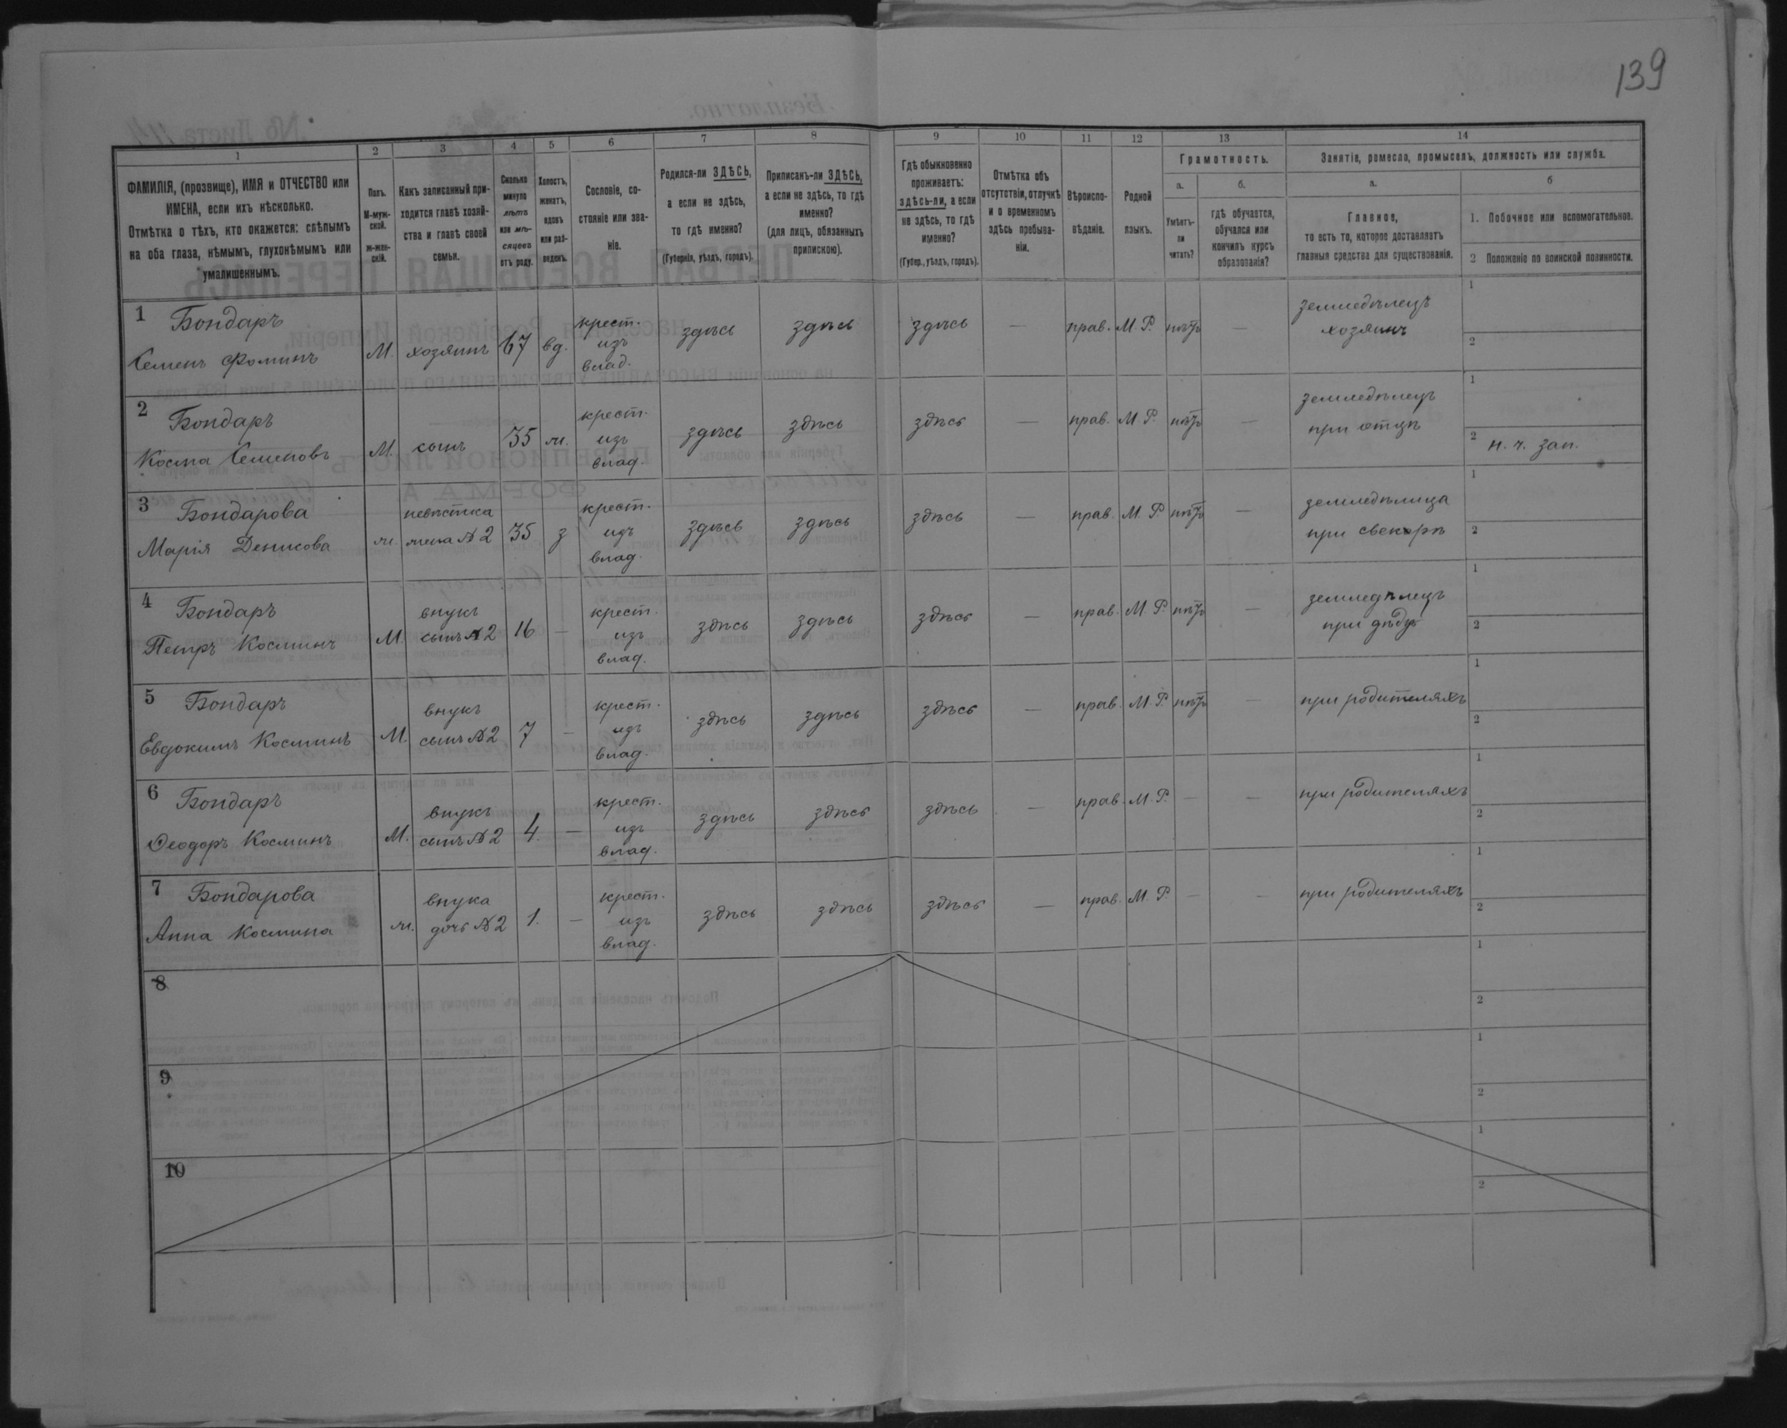 139
1 2 3 4 5 6 7 8 9 10 11 12 13 14
ФАМИЛІЯ, (прозвище), ИМЯ и ОТЧЕСТВО или
ИМЕНА, если ихъ нѣсколько.
Отмѣтка о тѣхъ, кто окажется: слѣпымъ
на оба глаза, нѣмымъ, глухонѣмымъ или
умалишеннымъ.
Полъ.
М-муж-
ской.
ж-жен-
скій.
Какъ записанный при-
ходится главѣ хозяй-
ства и главѣ своей
семьи.
Сколько
минуло
лѣтъ
или мѣ-
сяцевъ
отъ роду.
Холостъ,
женатъ,
вдовъ
или раз-
веденъ.
Сословіе, со-
стояніе или зва-
ніе.
Родился-ли ЗДѢСЬ,
а если не здѣсь,
то гдѣ именно?
(Губернія, уѣздъ, городъ).
Приписанъ-ли ЗДѢСЬ,
а если не здѣсь, то гдѣ
именно?
(для лицъ, обязанныхъ
припискою).
Гдѣ обыкновенно
проживаетъ:
здѣсь-ли, а если
не здѣсь, то гдѣ
именно?
(Губер., уѣздъ, городъ).
Отмѣтка объ
отсутствіи, отлучкѣ
и о временномъ
здѣсь пребыва-
ніи.
Вѣроиспо-
вѣданіе.
Родной
языкъ.
Грамотность.
а.
Умѣетъ-
ли
читать?
б.
гдѣ обучается,
обучался или
кончилъ курсъ
образованія?
Занятіе, ремесло, промыселъ, должность или служба.
а.
Главное,
то есть то, которое доставляетъ
главныя средства для существованія.
б
1. Побочное или вспомогательное.
2 Положеніе по воинской повинности.
1 Бондаръ
Семенъ Фоминъ
М. хозяинъ 67 вд.
крест.
изъ
влад.
здѣсь здѣсь здѣсь — прав. М. Р. нѣтъ —
земледѣлецъ
хозяинъ
1
2
2 Бондаръ
Косма Семеновъ
М. сынъ 35 ж.
крест.
изъ
влад.
здѣсь здѣсь здѣсь — прав. М. Р. нѣтъ —
земледѣлецъ
при отцѣ
1
2 н. ч. зап.
3 Бондарова
Марія Денисова
ж.
невѣстка
жена №2
35 з
крест.
изъ
влад.
здѣсь здѣсь здѣсь — прав. М. Р. нѣтъ —
земледѣлица
при свекорѣ
1
2
4 Бондаръ
Петръ Косминъ
М
внукъ
сынъ №2
16 —
крест.
изъ
влад.
здѣсь здѣсь здѣсь — прав. М. Р. нѣтъ —
земледѣлецъ
при дѣду
1
2
5 Бондаръ
Евдокимъ Косминъ
М.
внукъ
сынъ №2
7 —
крест.
изъ
влад.
здѣсь здѣсь здѣсь — прав. М. Р. нѣтъ —
при родителяхъ
1
2
6 Бондаръ
Ѳеодоръ Косминъ
М.
внукъ
сынъ №2
4. —
крест.
изъ
влад.
здѣсь здѣсь здѣсь — прав. М. Р. — —
при родителяхъ
1
2
7 Бондарова
Анна Космина
ж.
внука
дочь №2
1. —
крест.
изъ
влад.
здѣсь здѣсь здѣсь — прав. М. Р. — —
при родителяхъ
1
2
8
1
2
9
1
2
10
1
2